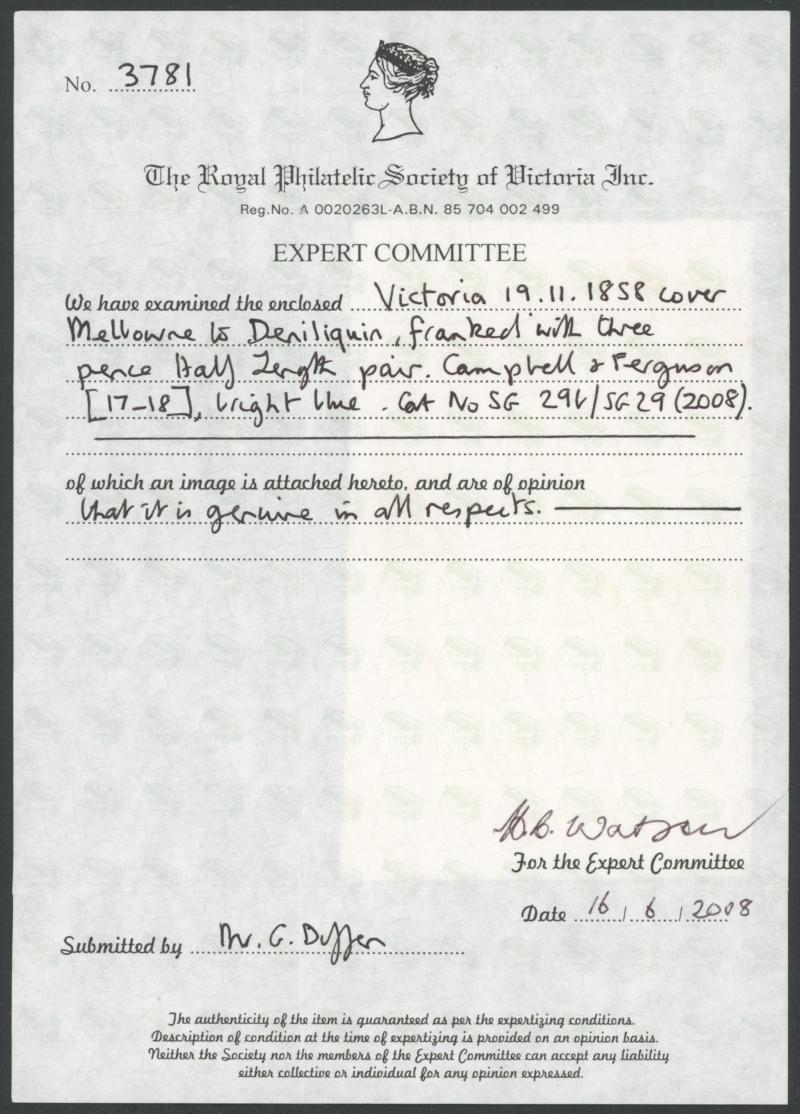 No. 3781
The Royal Philatelic Society of Victoria Inc.
Reg.No. A 0020263L-A.B.N. 85 704 002 499
EXPERT COMMITTEE
We have examined the enclosed Victoria 19.11.1858 cover
Melbourne to Deniliquin, franked with three
pence Half Length pair. Campbell & Ferguson
[17-18], bright blue. Cat No SG 29b/SG29 (2008).
of which an image is attached hereto, and are of opinion
that it is genuine in all respects.
H.B. Watson
For the Expert Committee
Date 16 / 6 / 2008
Submitted by Mr. G. Duffen
The authenticity of the item is guaranteed as per the expertizing conditions.
Description of condition at the time of expertizing is provided on an opinion basis.
Neither the Society nor the members of the Expert Committee can accept any liability
either collective or individual for any opinion expressed.